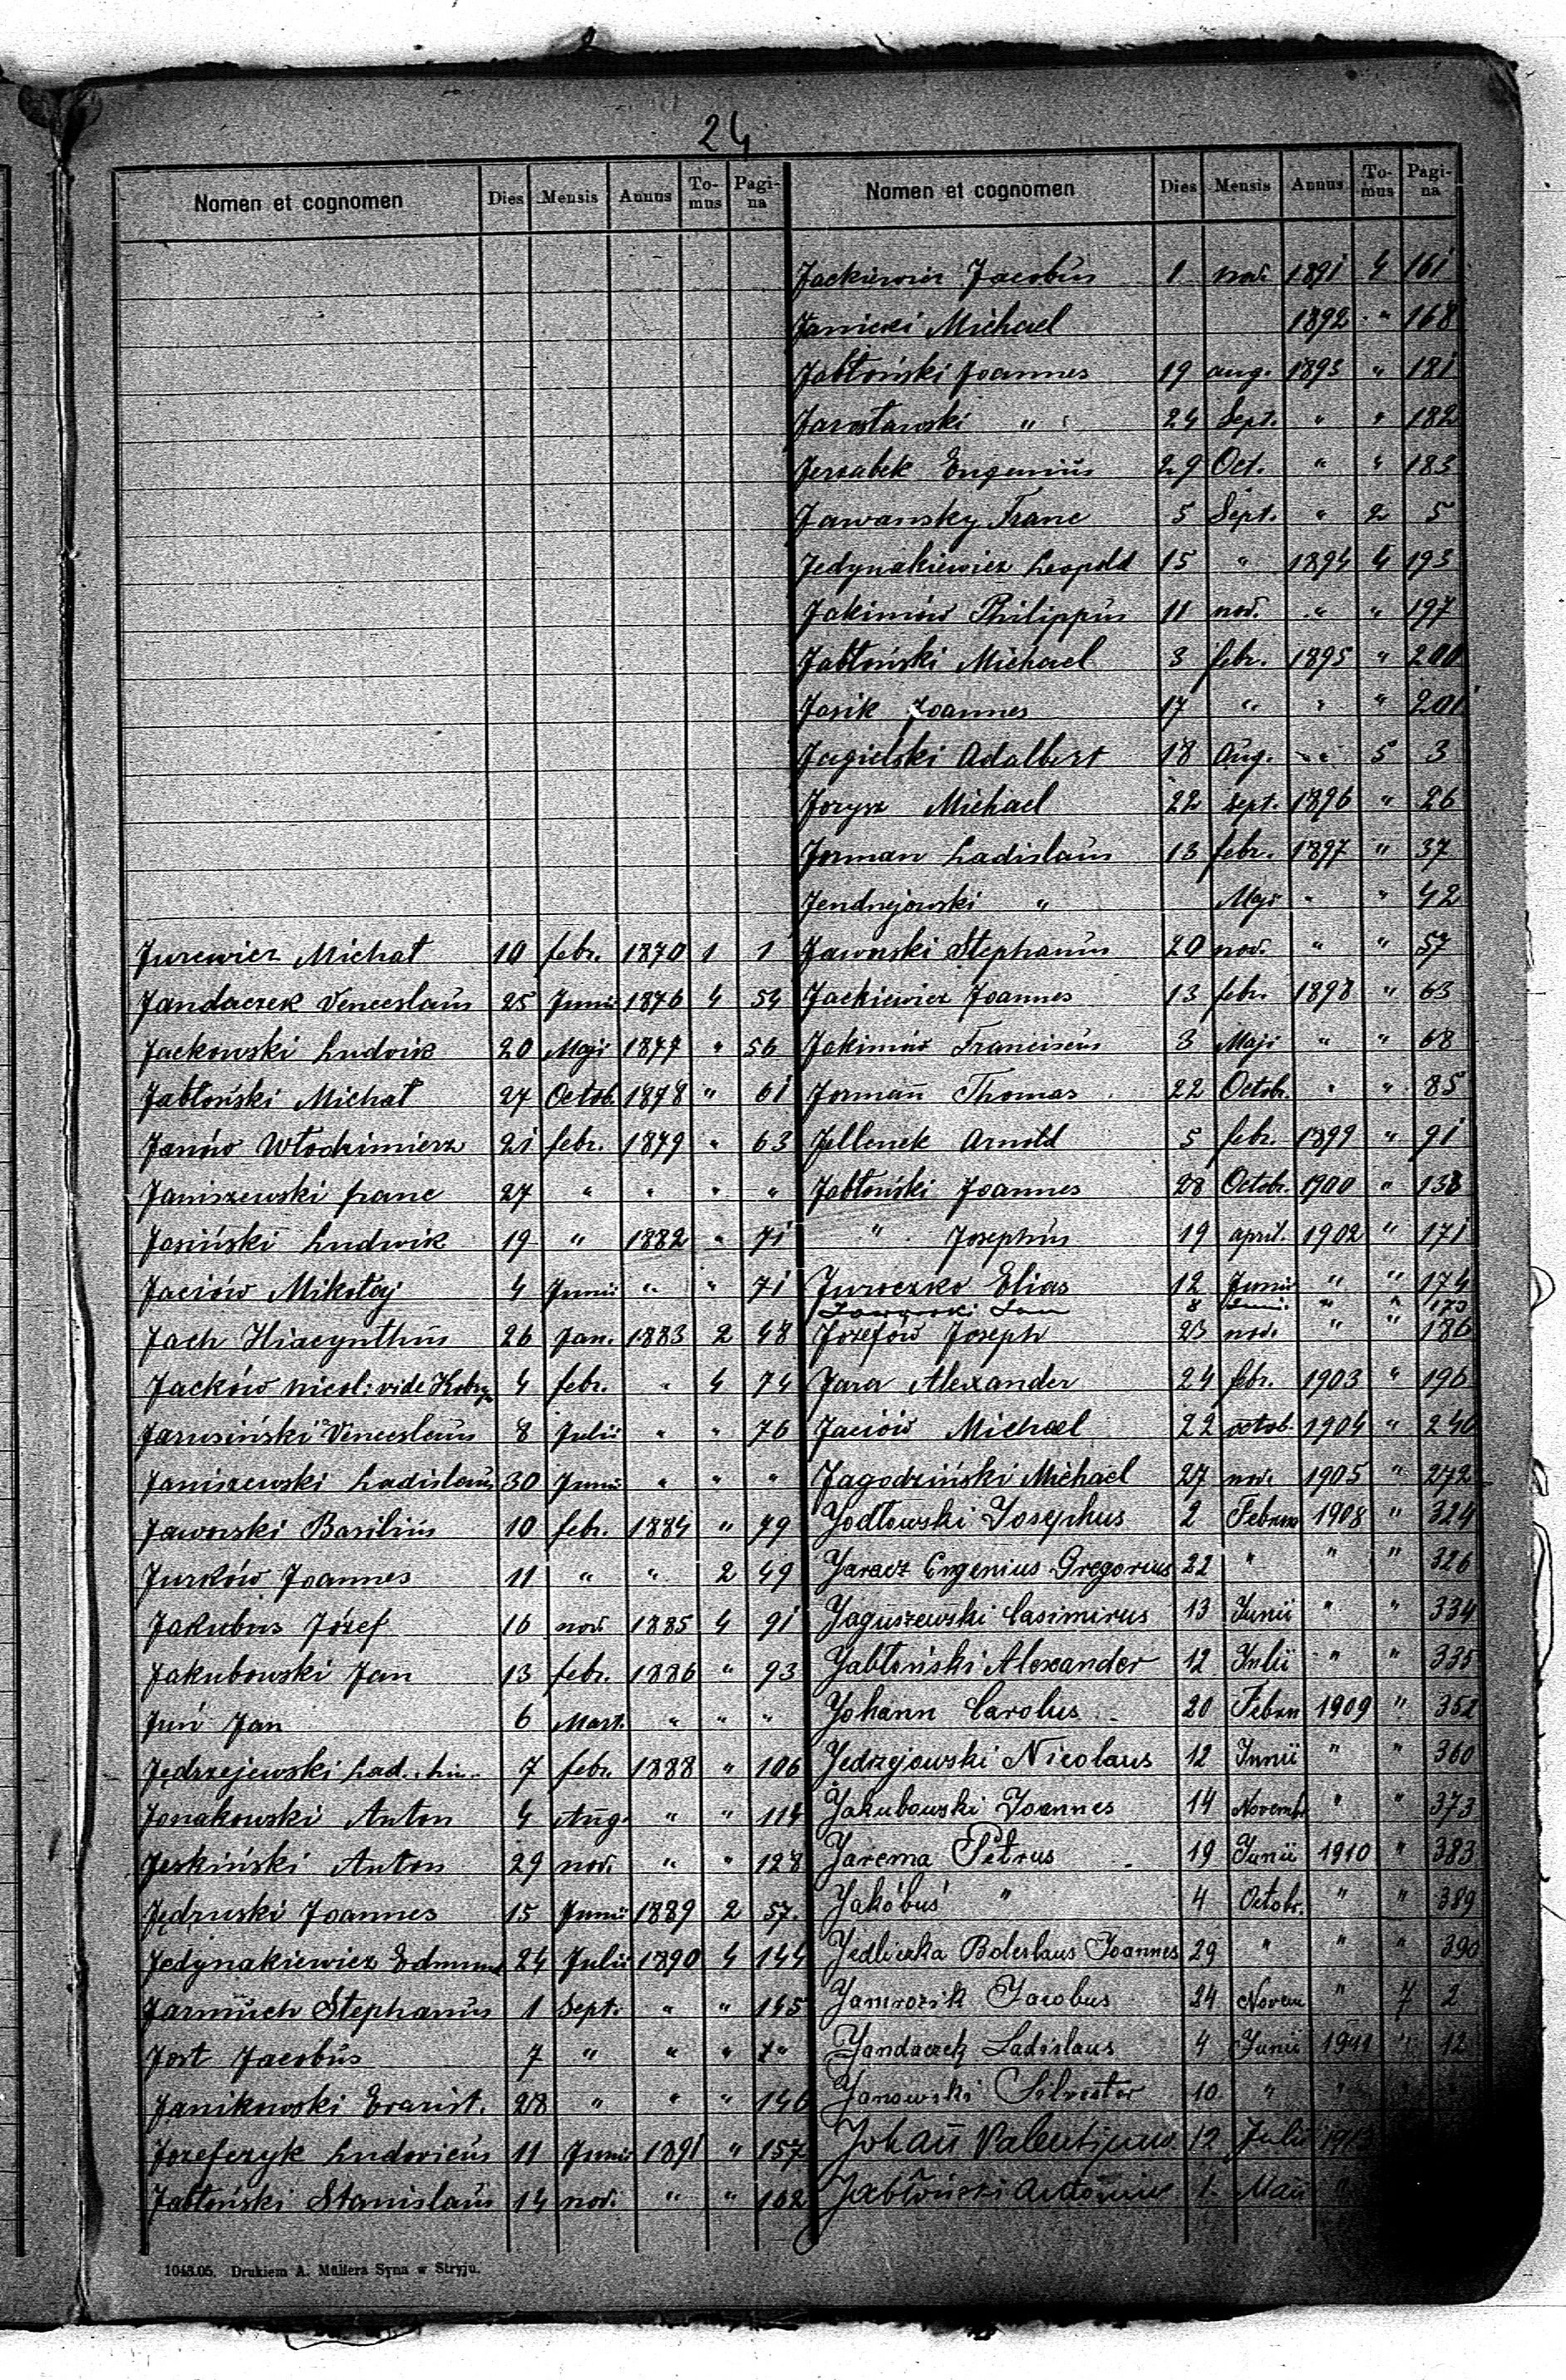 24
Nomen et cognomen Dies Mensis Annus To-mus Pagi-na
Jurewicz Michał 10 febr. 1870 1 1
Jandaczek Venceslaus 25 Junii 1876 4 54
Jackowski Ludwik 20 Maji 1877 " 56
Jabłoński Michał 27 Octob. 1878 " 61
Janów Włodzimierz 21 febr. 1879 " 63
Janiszewski franc 27 " " " "
Jasiński Ludwik 19 " 1882 " 71
Jaciów Mikołaj 4 Junii " " 71
Jach Hiacynthus 26 Jan. 1883 2 48
Jacków nicol: vide 4 febr. " 4 74
Jarusiński Venceslaus 8 Julii " " 76
Janiszewski Ladislaus 30 Junii " " "
Jaworski Basilius 10 febr. 1884 " 79
Jurków Joannes 11 " " 2 49
Jakubus Józef 16 nov. 1885 4 91
Jakubowski Jan 13 febr. 1886 " 93
Juń Jan 6 Mart. " " "
Jędrzejewski Lad. 7 febr. 1888 " 106
Jonakowski Anton 4 Aug. " " 114
Jeskiński Anton 29 nov. " " 128
Jędruski Joannes 15 Junii 1889 2 57.
Jedynakiewicz Edmund 24 Julii 1890 4 144
Jarmuch Stephanus 1 Sept. " " 145
Jost Jacobus 7 " " "
Janikowski Evarist. 28 " " " 146
Jozefczyk Ludovicus 11 Junii 1891 " 157
Jabłoński Stanislaus 14 nov. " " 162
Nomen et cognomen Dies Mensis Annus To-mus Pagi-na
Jackiewicz Jacobus 1 nov. 1891 4 161
Janicki Michael 1892 " 168
Jabłoński Joannes 19 aug. 1893 " 181
Jarosławski " 24 Sept. " " 182
Jerzabek Eugenius 29 Oct. " " 183
Jawansky Franc 5 Sept. " 2 5
Jedynakiewicz Leopold 15 " 1894 4 193
Jakimów Philippus 11 nov. " " 197
Jabłoński Michael 3 febr. 1895 " 200
Jasik Joannes 17 " " " 201
Jagielski Adalbert 18 Aug. " 5 3
Jorysz Michael 22 Sept. 1896 " 26
Jorman Ladislaus 13 febr. 1897 " 37
Jendrejowski " Maji " " 42
Jaworski Stephanus 20 nov. " " 57
Jackiewicz Joannes 13 febr. 1898 " 63
Jakimów Franciscus 3 Maji " " 68
Jormann Thomas 22 Octobr. " " 85
Jellenek Arnold 5 febr. 1899 " 91
Jabłoński Joannes 28 Octobr. 1900 " 133
" Josephus 19 april. 1902 " 171
Juroczko Elias 12 Junii " " 174
Jan 8 " "
Jozefów Joseph 23 nov. " " 186
Jara Alexander 24 febr. 1903 " 196
Jaciów Michael 22 octob. 1904 " 240
Jagodziński Michael 27 nov. 1905 " 272
Jodłowski Josephus 2 Februar 1908 " 324
Jaracz Eugenius Gregorius 22 " " " 326
Jaguszewski Casimirus 13 Junii " " 334
Jabłoński Alexander 12 Julii " " 335
Johann Carolus 20 Febru 1909 " 352
Jedrzejowski Nicolaus 12 Junii " " 360
Jakubowski Joannes 14 Novembr " " 373
Jarema Petrus 19 Junii 1910 " 383
Jakóbus " 4 Octobr. " " 389
Jedliczka Boleslaus Joannes 29 " " " 390
Jamrozik Jacobus 24 Novem " 7 2
Jandaczek Ladislaus 4 Junii 1911 " 12
Janowski Silvester 10 "
Johann 12 Julii 1913
Jabłoński 1.
1043.05. Drukiem A. Müllera Syna w Stryju.